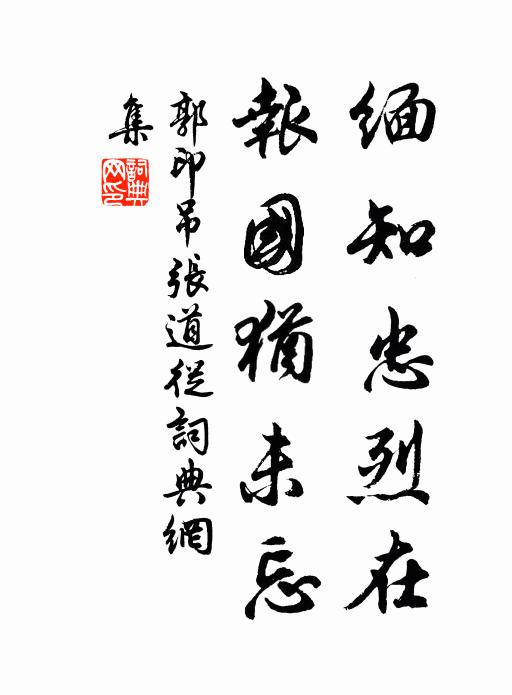 緬知忠烈在
報國猶未忘
郭印吊張道從詞典網
集
詞典網印